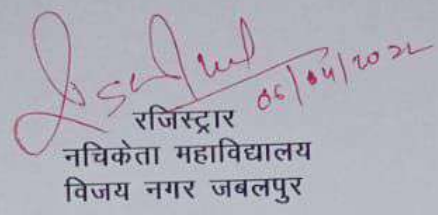 06/04/2022
रजिस्ट्रार
नचिकेता महाविद्यालय
विजय नगर जबलपुर